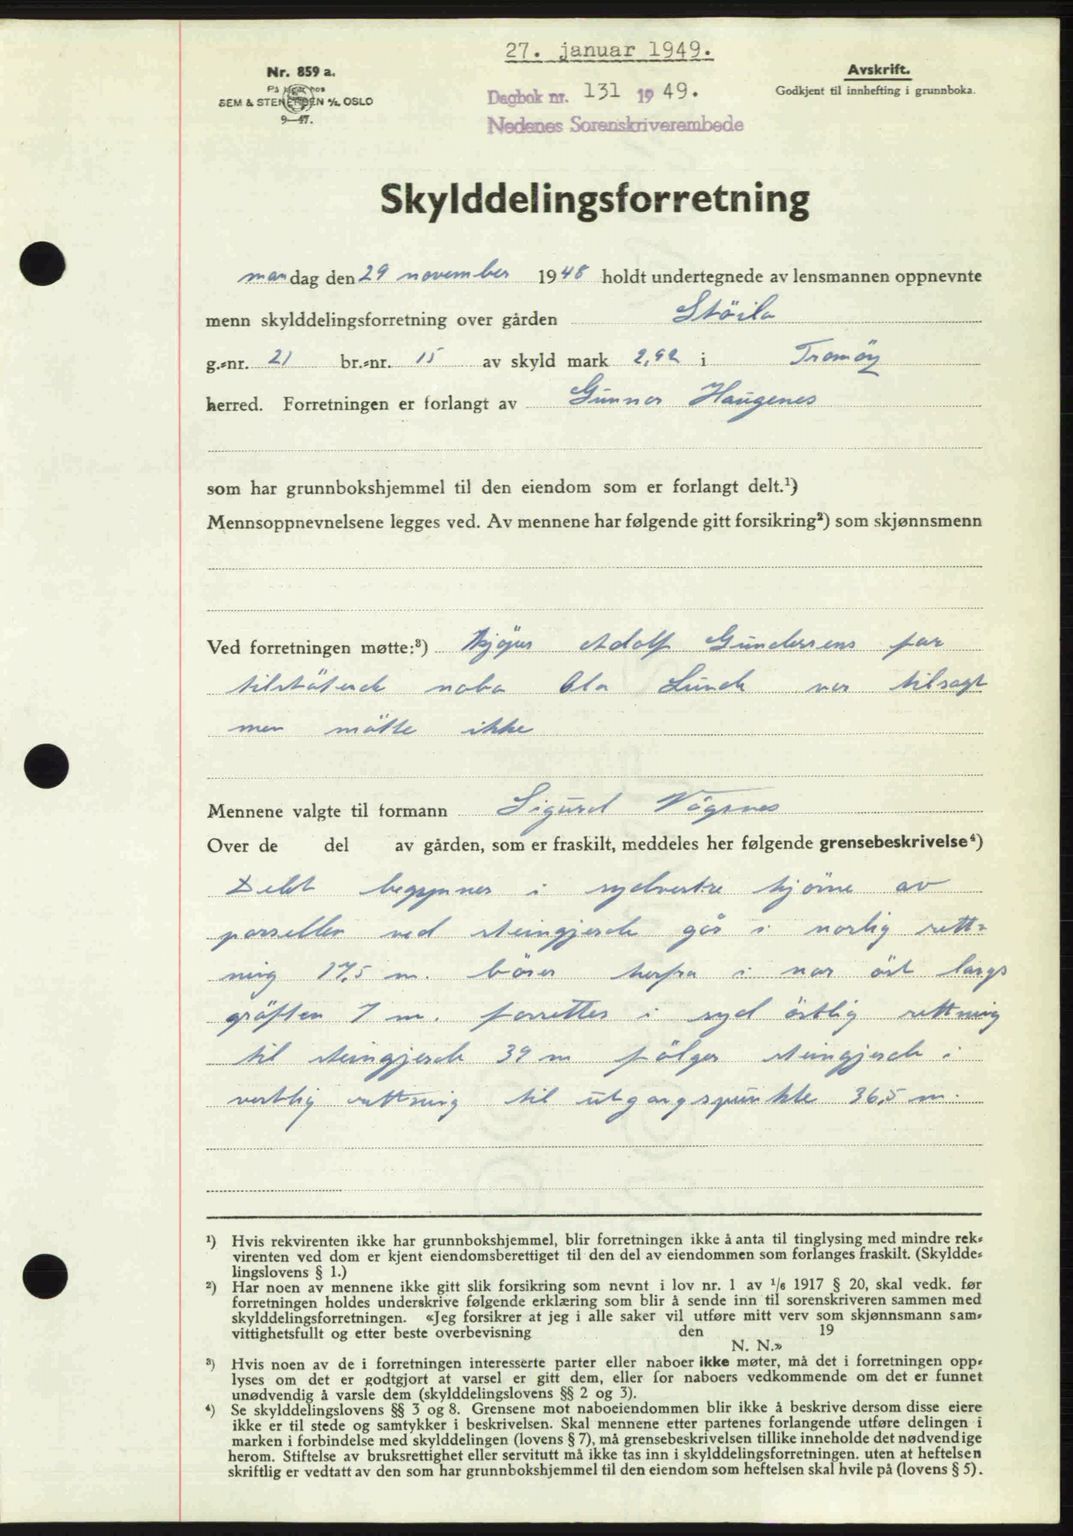 27. januar 1949.
Nr. 859 a.
På lager hos
SEM & STENERSEN A/S. OSLO
9—47.
Dagbok nr. 131 1949.
Nedenes Sorenskriverembede
Avskrift.
Godkjent til innhefting i grunnboka.
Skylddelingsforretning
mandag den 29 november 1948 holdt undertegnede av lensmannen oppnevnte
menn skylddelingsforretning over gården Stöila
g.-nr. 21 br.-nr. 15 av skyld mark 2,92 i Tromöy
herred. Forretningen er forlangt av Gunnar Haugenes
som har grunnbokshjemmel til den eiendom som er forlangt delt.¹)
Mennsoppnevnelsene legges ved. Av mennene har følgende gitt forsikring²) som skjønnsmenn
Ved forretningen møtte:³) Kjöper Adolf Gundersens far
tilstötende nabo Ola Lunde var tilsagt
men mötte ikke
Mennene valgte til formann Sigurd Vågsnes
Over de del av gården, som er fraskilt, meddeles her følgende grensebeskrivelse⁴)
Delet begynner i sydvestre hjörne av
parsellen ved steingjerde går i norlig rett-
ning 17,5 m. böier herfra i nor öst langs
gröften 7 m. forsettes i syd östlig rettning
til steingjerde 39 m fölger steingjerde i
vestlig rettning til utgangspunkte 36,5 m.
¹) Hvis rekvirenten ikke har grunnbokshjemmel, blir forretningen ikke å anta til tinglysing med mindre rek-
virenten ved dom er kjent eiendomsberettiget til den del av eiendommen som forlanges fraskilt. (Skyldde-
lingslovens § 1.)
²) Har noen av mennene ikke gitt slik forsikring som nevnt i lov nr. 1 av 1/6 1917 § 20, skal vedk. før
forretningen holdes underskrive følgende erklæring som blir å sende inn til sorenskriveren sammen med
skylddelingsforretningen. «Jeg forsikrer at jeg i alle saker vil utføre mitt verv som skjønnsmann sam-
vittighetsfullt og etter beste overbevisning den 19
N. N.»
³) Hvis noen av de i forretningen interesserte parter eller naboer ikke møter, må det i forretningen opp-
lyses om det er godtgjort at varsel er gitt dem, eller for naboers vedkommende om det er funnet
unødvendig å varsle dem (skylddelingslovens §§ 2 og 3).
⁴) Se skylddelingslovens §§ 3 og 8. Grensene mot naboeiendommen blir ikke å beskrive dersom disse eiere
ikke er til stede og samtykker i beskrivelsen. Skal mennene etter partenes forlangende utføre delingen i
marken i forbindelse med skylddelingen (lovens § 7), må grensebeskrivelsen tillike inneholde det nødvendige
herom. Stiftelse av bruksrettighet eller servitutt må ikke tas inn i skylddelingsforretningen. uten at heftelsen
skriftlig er vedtatt av den som har grunnbokshjemmel til den eiendom som heftelsen skal hvile på (lovens § 5).